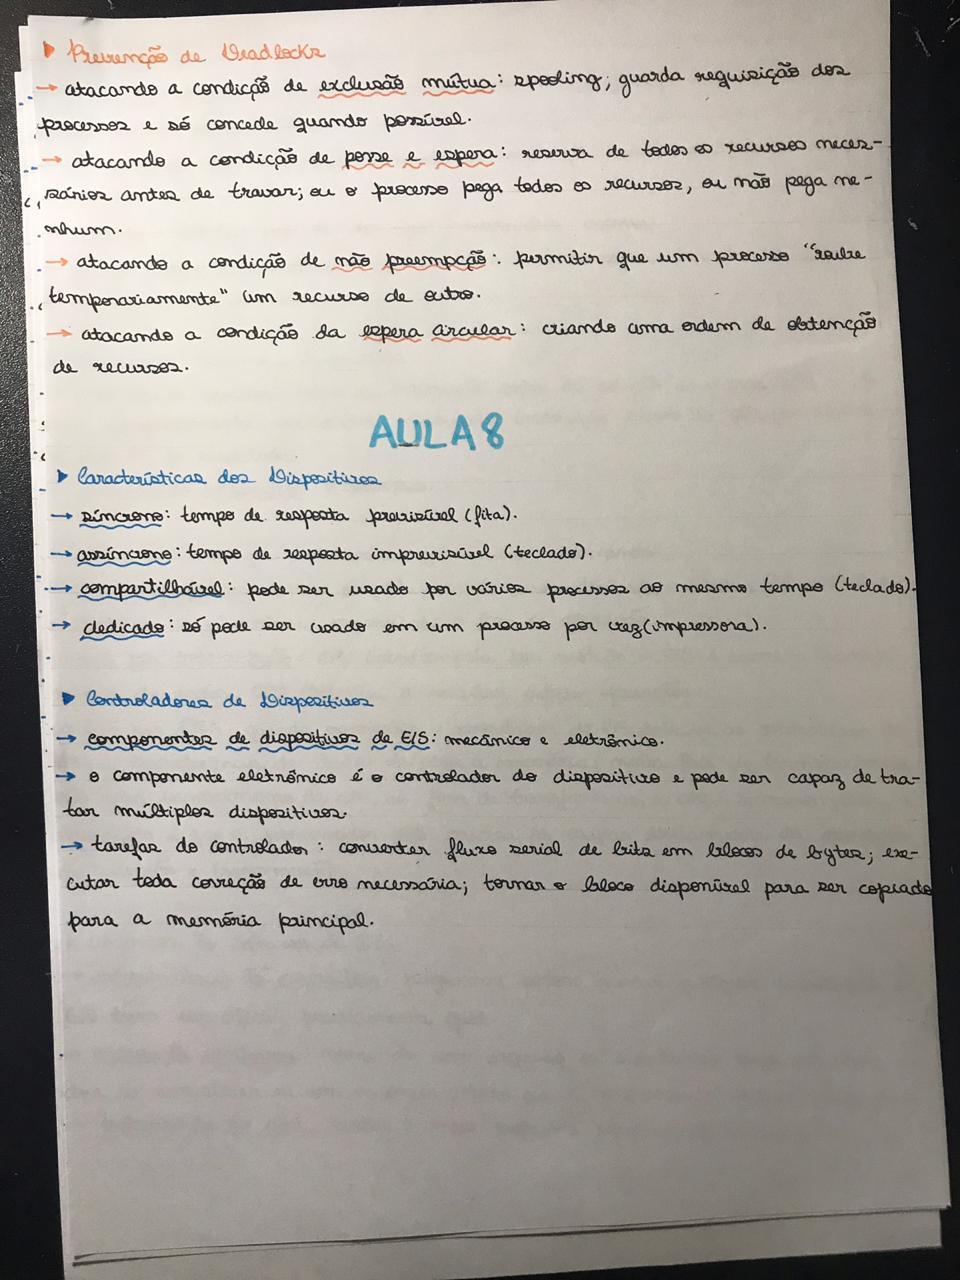 Prevenção de Deadlocks
→ atacando a condição de exclusão mútua: spooling; guarda requisição dos
processos e só concede quando possível.
→ atacando a condição de posse e espera: reserva de todos os recursos neces-
sários antes de travar; ou o processo pega todos os recursos, ou não pega ne-
nhum.
→ atacando a condição de não preempção: permitir que um processo "roube
temporariamente" um recurso de outro.
→ atacando a condição da espera circular: criando uma ordem de obtenção
de recursos.
AULA 8
Características dos Dispositivos
→ síncrono: tempo de resposta previsível (fita).
→ assíncrono: tempo de resposta imprevisível (teclado).
→ compartilhável: pode ser usado por vários processos ao mesmo tempo (teclado).
→ dedicado: só pode ser usado em um processo por vez (impressora).
Controladores de Dispositivos
→ componentes de dispositivos de E/S: mecânico e eletrônico.
→ o componente eletrônico é o controlador do dispositivo e pode ser capaz de tra-
tar múltiplos dispositivos.
→ tarefas do controlador: converter fluxo serial de bits em blocos de bytes; exe-
cutar toda correção de erro necessária; tornar o bloco disponível para ser copiado
para a memória principal.